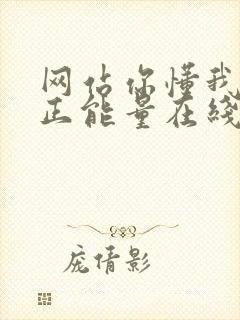 网站你懂我
正能量在线
庞倩影